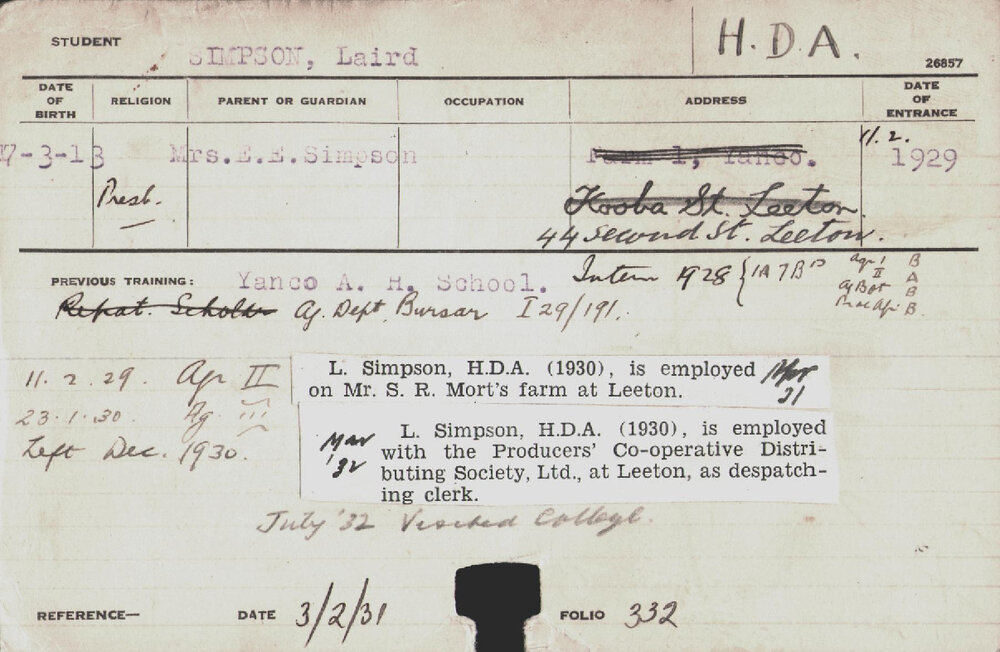 STUDENT SIMPSON, Laird H.D.A.
26857
DATE OF BIRTH RELIGION PARENT OR GUARDIAN OCCUPATION ADDRESS DATE OF ENTRANCE
17-3-13 Mrs.E.E.Simpson Farm 1, Yanco. 11.2.1929
Presb. Kooba St. Leeton
44 Second St. Leeton.
PREVIOUS TRAINING: Yanco A. H. School. Interm 1928 {1A 7B
Agr I B
II A
Ag Bot B
B.
Repat. Scholar Ag. Dept. Bursar I 29/191.
11.2.29. Agr II
23.1.30 Ag III
Left Dec. 1930.
L. Simpson, H.D.A. (1930), is employed
on Mr. S. R. Mort's farm at Leeton.
Apr 31
Mar '32
L. Simpson, H.D.A. (1930), is employed
with the Producers' Co-operative Distri-
buting Society, Ltd., at Leeton, as despatch-
ing clerk.
July '32 Visited College.
REFERENCE— DATE 3/2/31 FOLIO 332